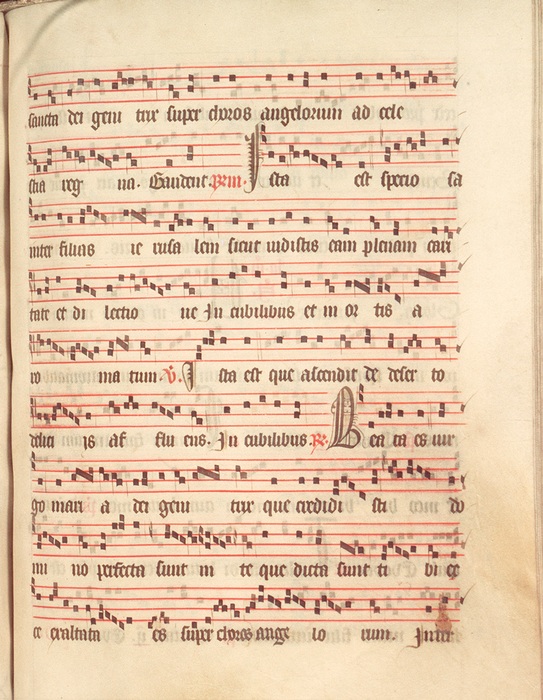 sancta dei geni trix super choros angelorum ad cele
stia reg na. Gaudent. Ista est specio sa
inter filias ie rusa lem sicut uidistis eam plenam cari
tate et di lectio ne In cubilibus et in or tis a
ro ma tum. V. Ista est que ascendit de deser to
delici is af flu ens. In cubilibus. R. Bea ta es uir
go mari a dei geni trix que credidi sti do
mi no perfecta sunt in te que dicta sunt ti bi ec
ce exaltata es super choros ange lo rum. Inter